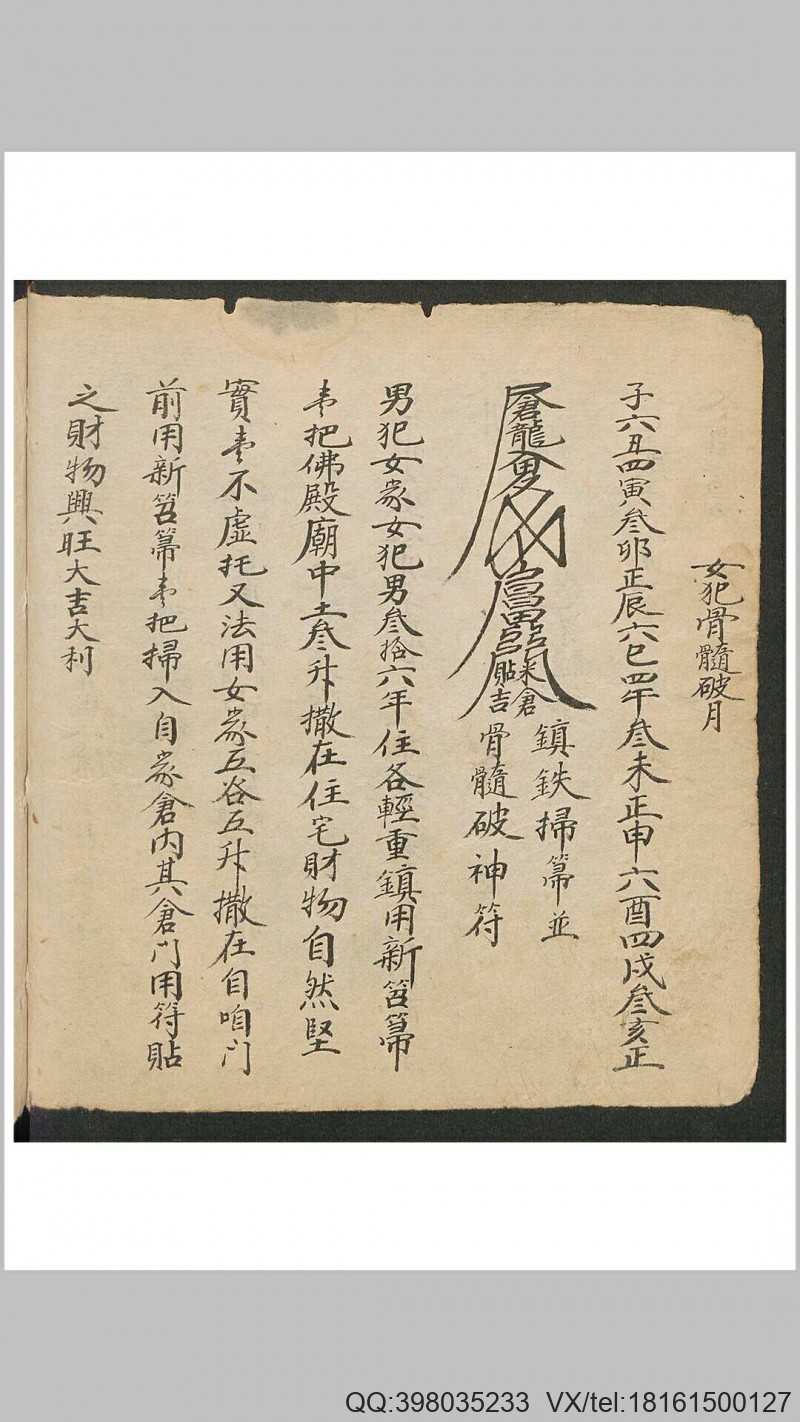 女犯骨髓破月
子六丑四寅叁卯正辰六巳四午叁未正申六酉四戌叁亥正
米倉
貼吉
鎮鉄掃箒並
骨髓破神符
男犯女家女犯男叁拾六年住各輕重鎮用新笤箒
把佛殿廟中土叁升撒在住宅財物自然堅
實不虛托又法用女家五谷五升撒在自咱门
前用新笤箒把掃入自家倉内其倉门用符貼
之財物興旺大吉大利
QQ:398035233 VX/tel:18161500127